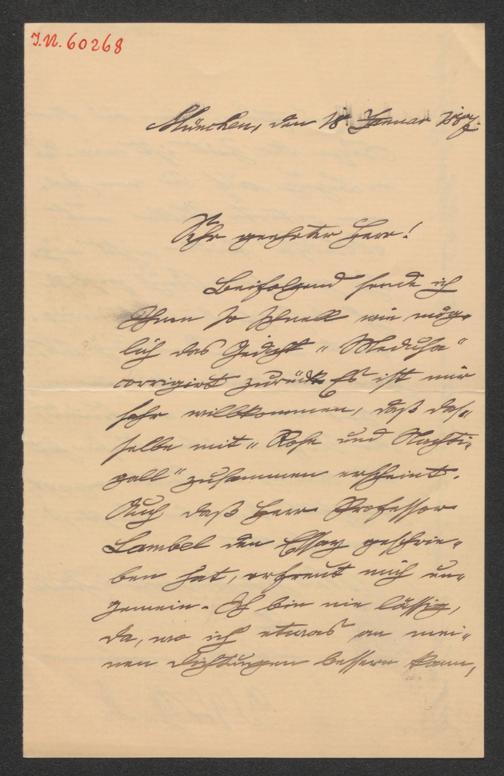 J.N. 60268
München, den 18 Januar 1887.
Sehr geehrter Herr!
Beifolgend sende ich
Ihnen so schnell wie mög-
lich das Gedicht „Medusa"
corrigirt zurück. Es ist mir
sehr willkommen, daß das-
selbe mit „Rose und Nachti-
gall" zusammen erscheint.
Auch daß Herr Professor
Lambel den Essay geschrie-
ben hat, erfreut mich un-
gemein. Ich bin nie lässig,
da, wo ich etwas an mei-
nen Dichtungen bessern kann,